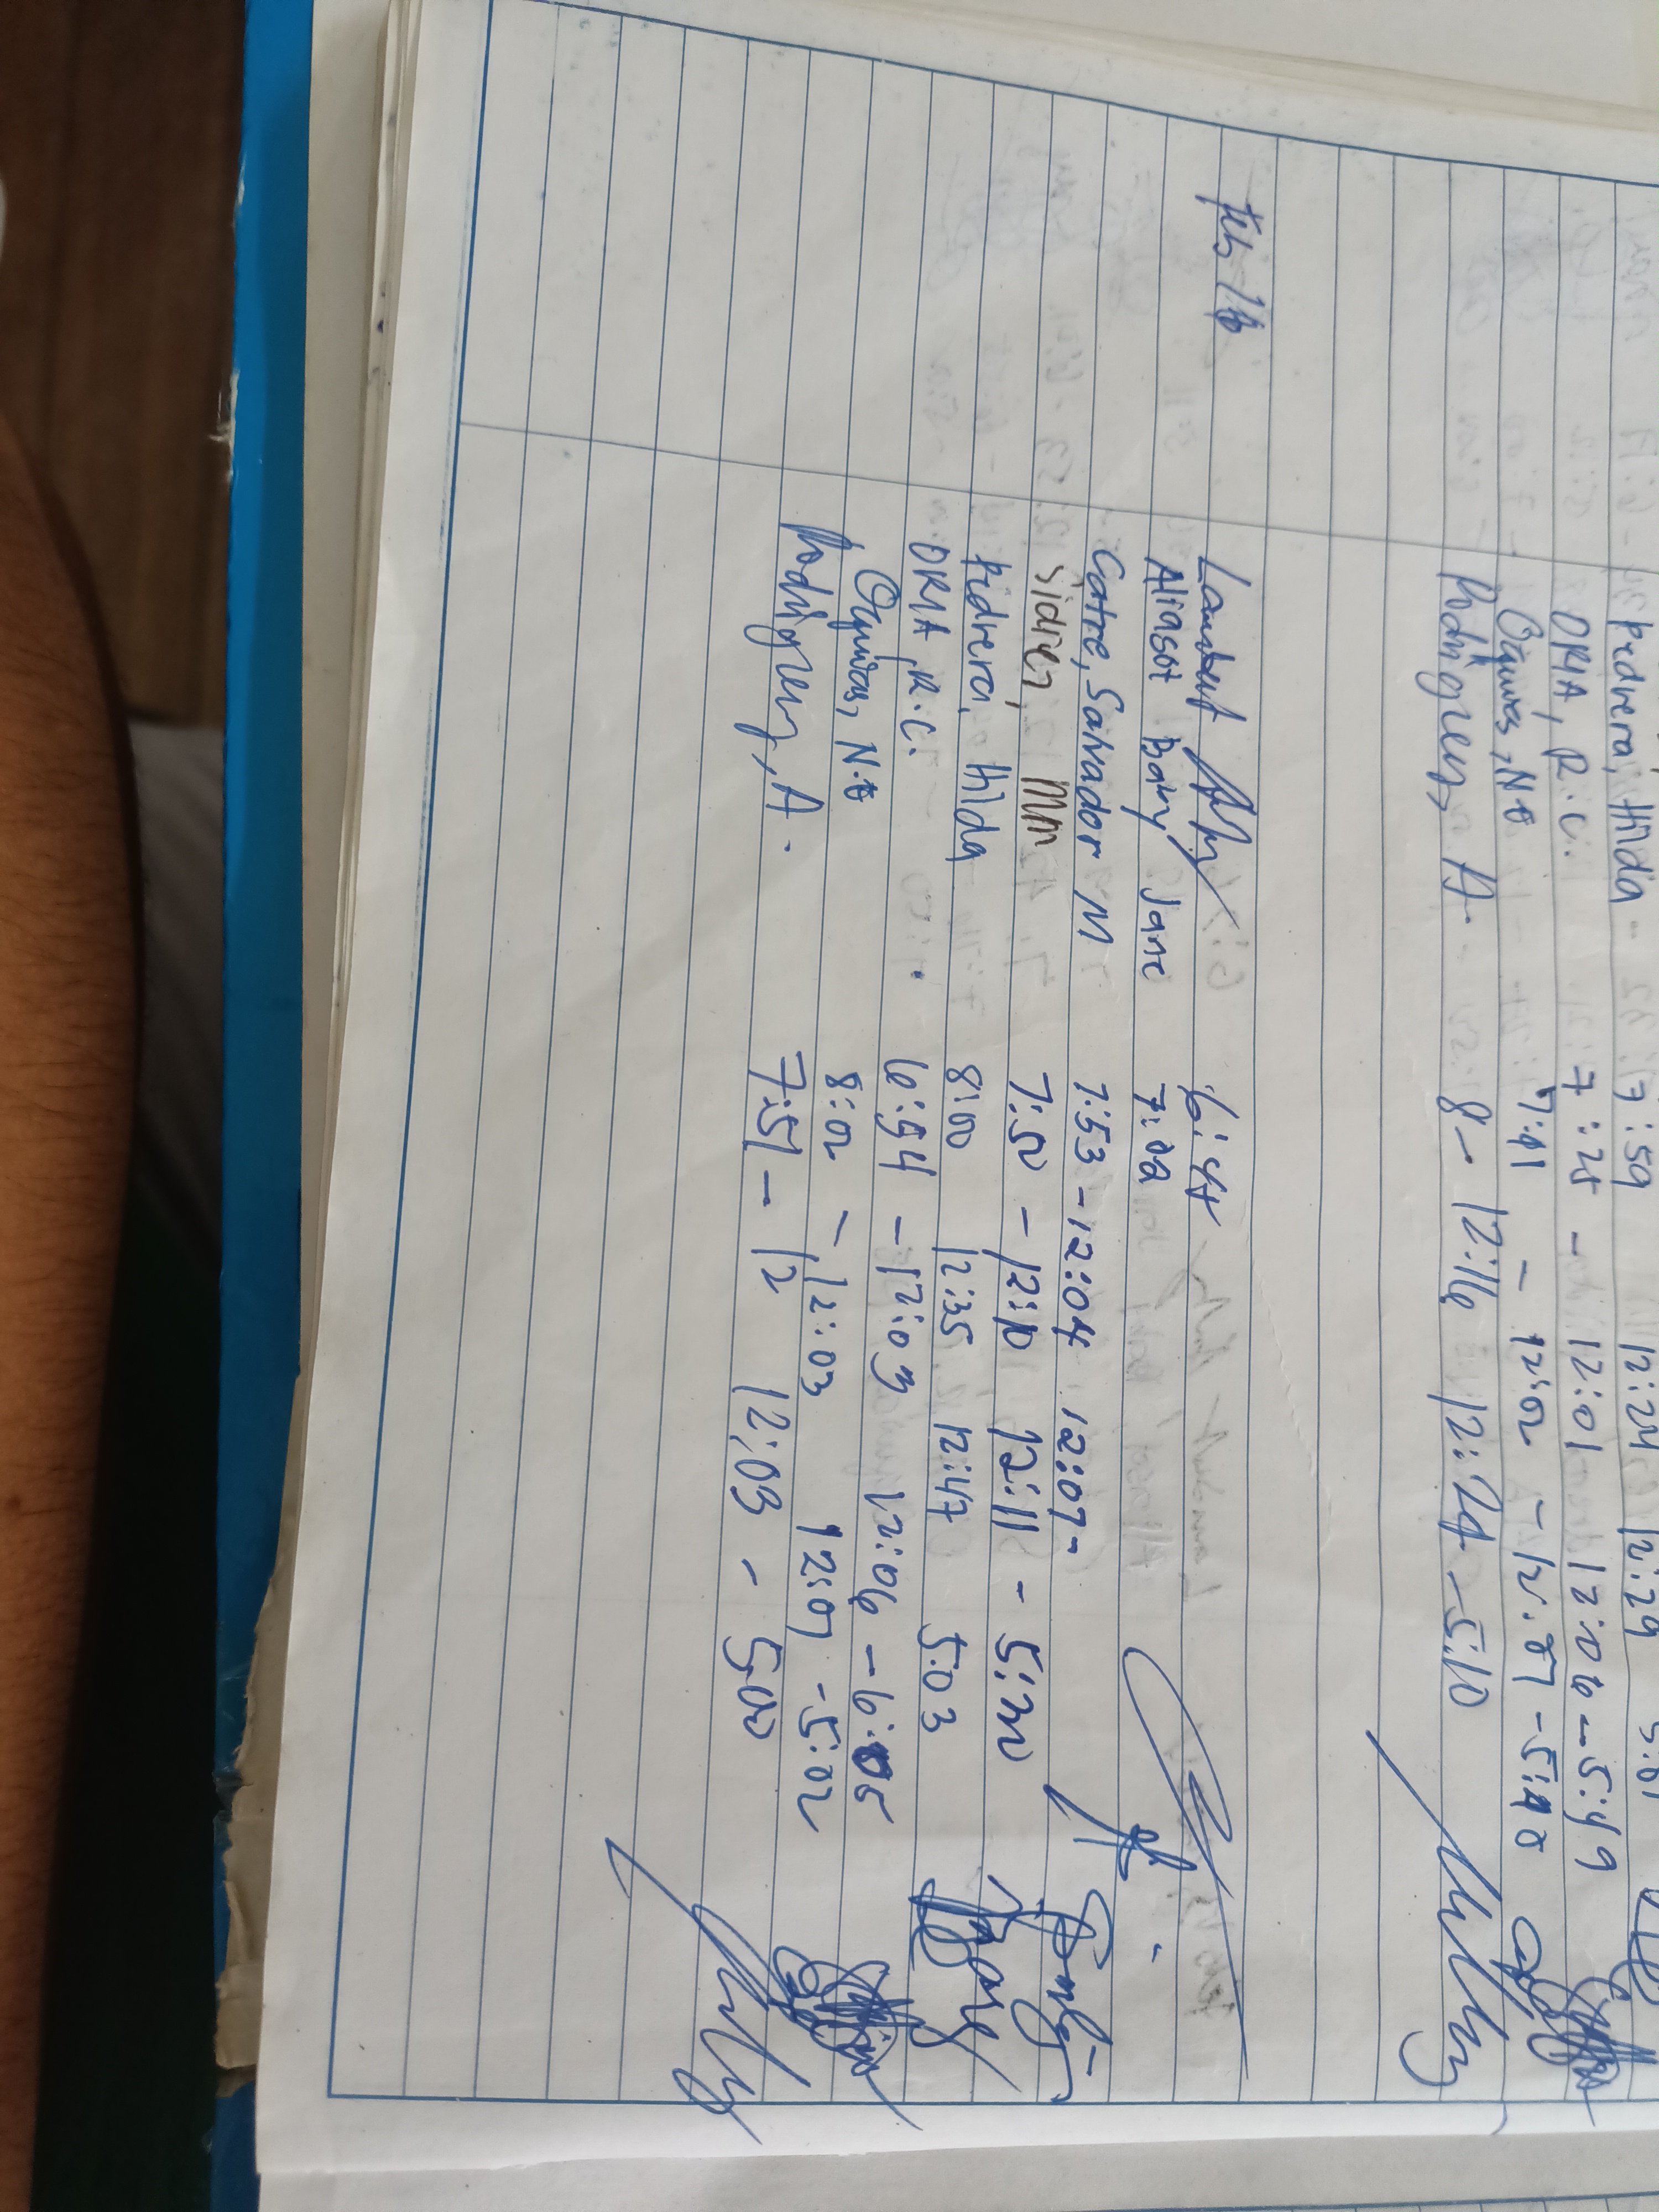 Pedrera, Hilda 7:59 12:24 12:29
ORIA, R.C. 7:25 - 12:01 12:06 - 5:49
N 7:41 - 12:02 - 12:07 - 5:40
Rodriguez, A. 8 - 12:16 12:24 - 5:10
Feb 16
Lambert 6:47
Aliasot, Bany Jane 7:02
Catre, Salvador M 7:53 - 12:04 12:07 -
Sidrer, MM 7:50 - 12:10 12:11 - 5:20
Pedrera, Hilda 8:00 12:35 12:47 5:03
ORIA, R.C. 6:54 - 12:03 12:06 - 6:05
N 8:02 - 12:03 12:07 - 5:02
Rodriguez, A. 7:51 - 12 12:03 - 5:00